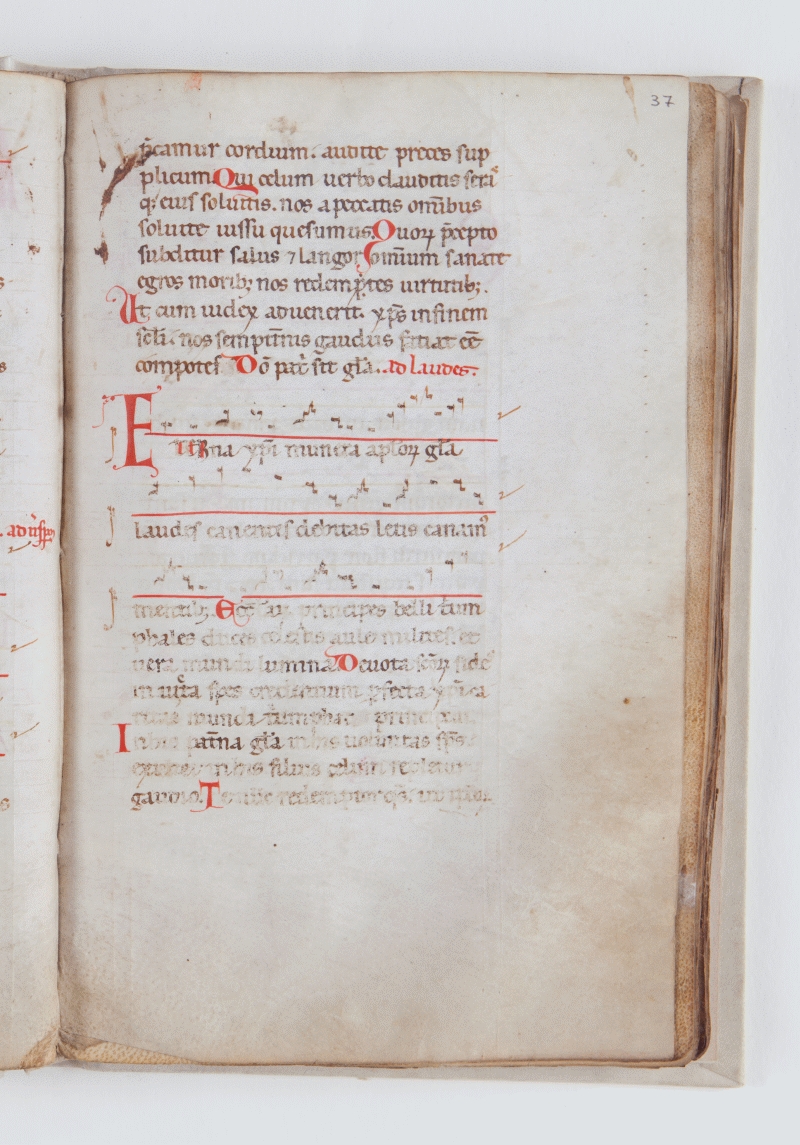 37
p̄camur cordium. audite preces sup
plicum Qui celum uerbo clauditis serāˢ
q; eius soluitis. nos a peccatis om̄ibus
soluite iussu quesumus. Quoꝝ p̄cepto
subditur salus ⁊ langor om̄ium sanate
egros morib; nos reddentes uirtutib;.
Ut cum iudex aduenerit. xp̄s in finem
scl̄i. nos sempit̄nis gaudiis faciat eē
compotes. Dō pat̄ sit gl̄a. ad laudes.
Eterna xp̄i munera apl̄oꝝ gl̄a
ad uesp̄
laudes canentes debitas letis canamꝰ
mentib;. Eccl̄iaꝝ principes belli t̄um
phales duces celestis aule milites. et
uera mundi lumina. Deuota sc̄oꝝ fides
inuicta spes credentium p̄fecta xp̄i ca
ritas mundi t̄umphat princi
In his pat̄na gl̄a in his uoluntas sp̄s
exultet in his filius celum repletur
gaudio. Te nunc redemptor q̄s.